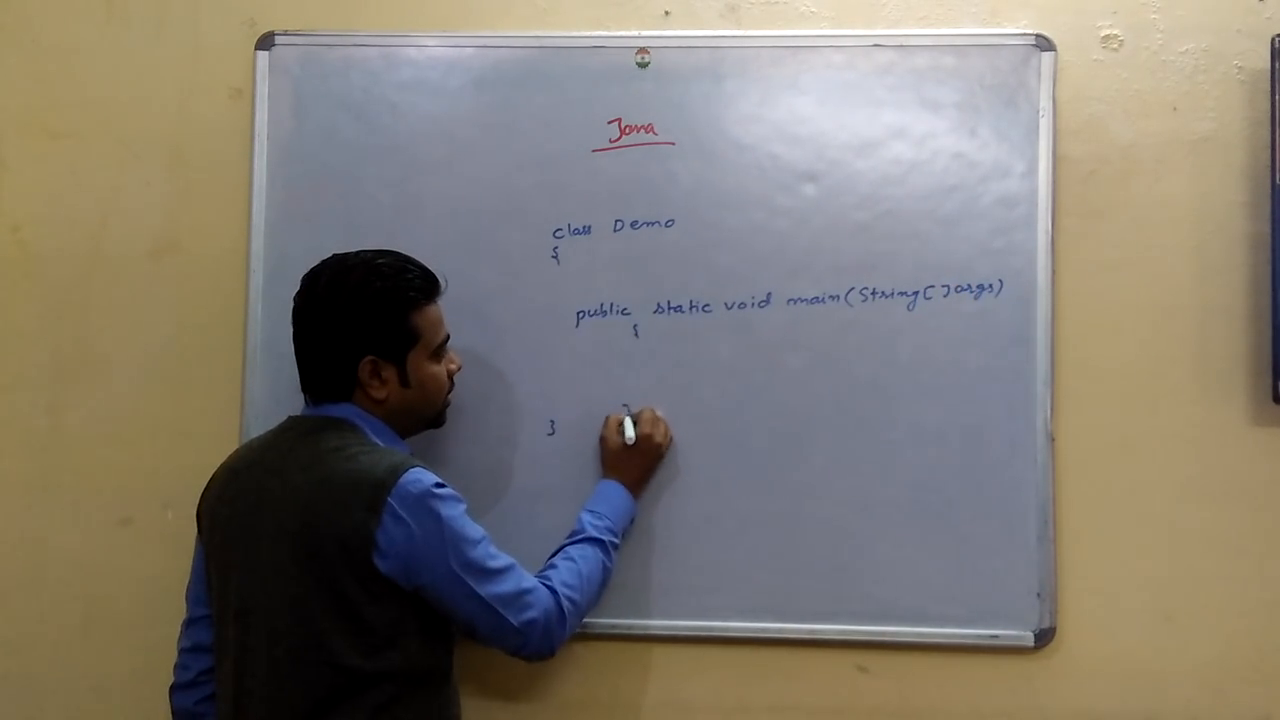 Java
class Demo
{
public static void main(String[]args)
{
}
}